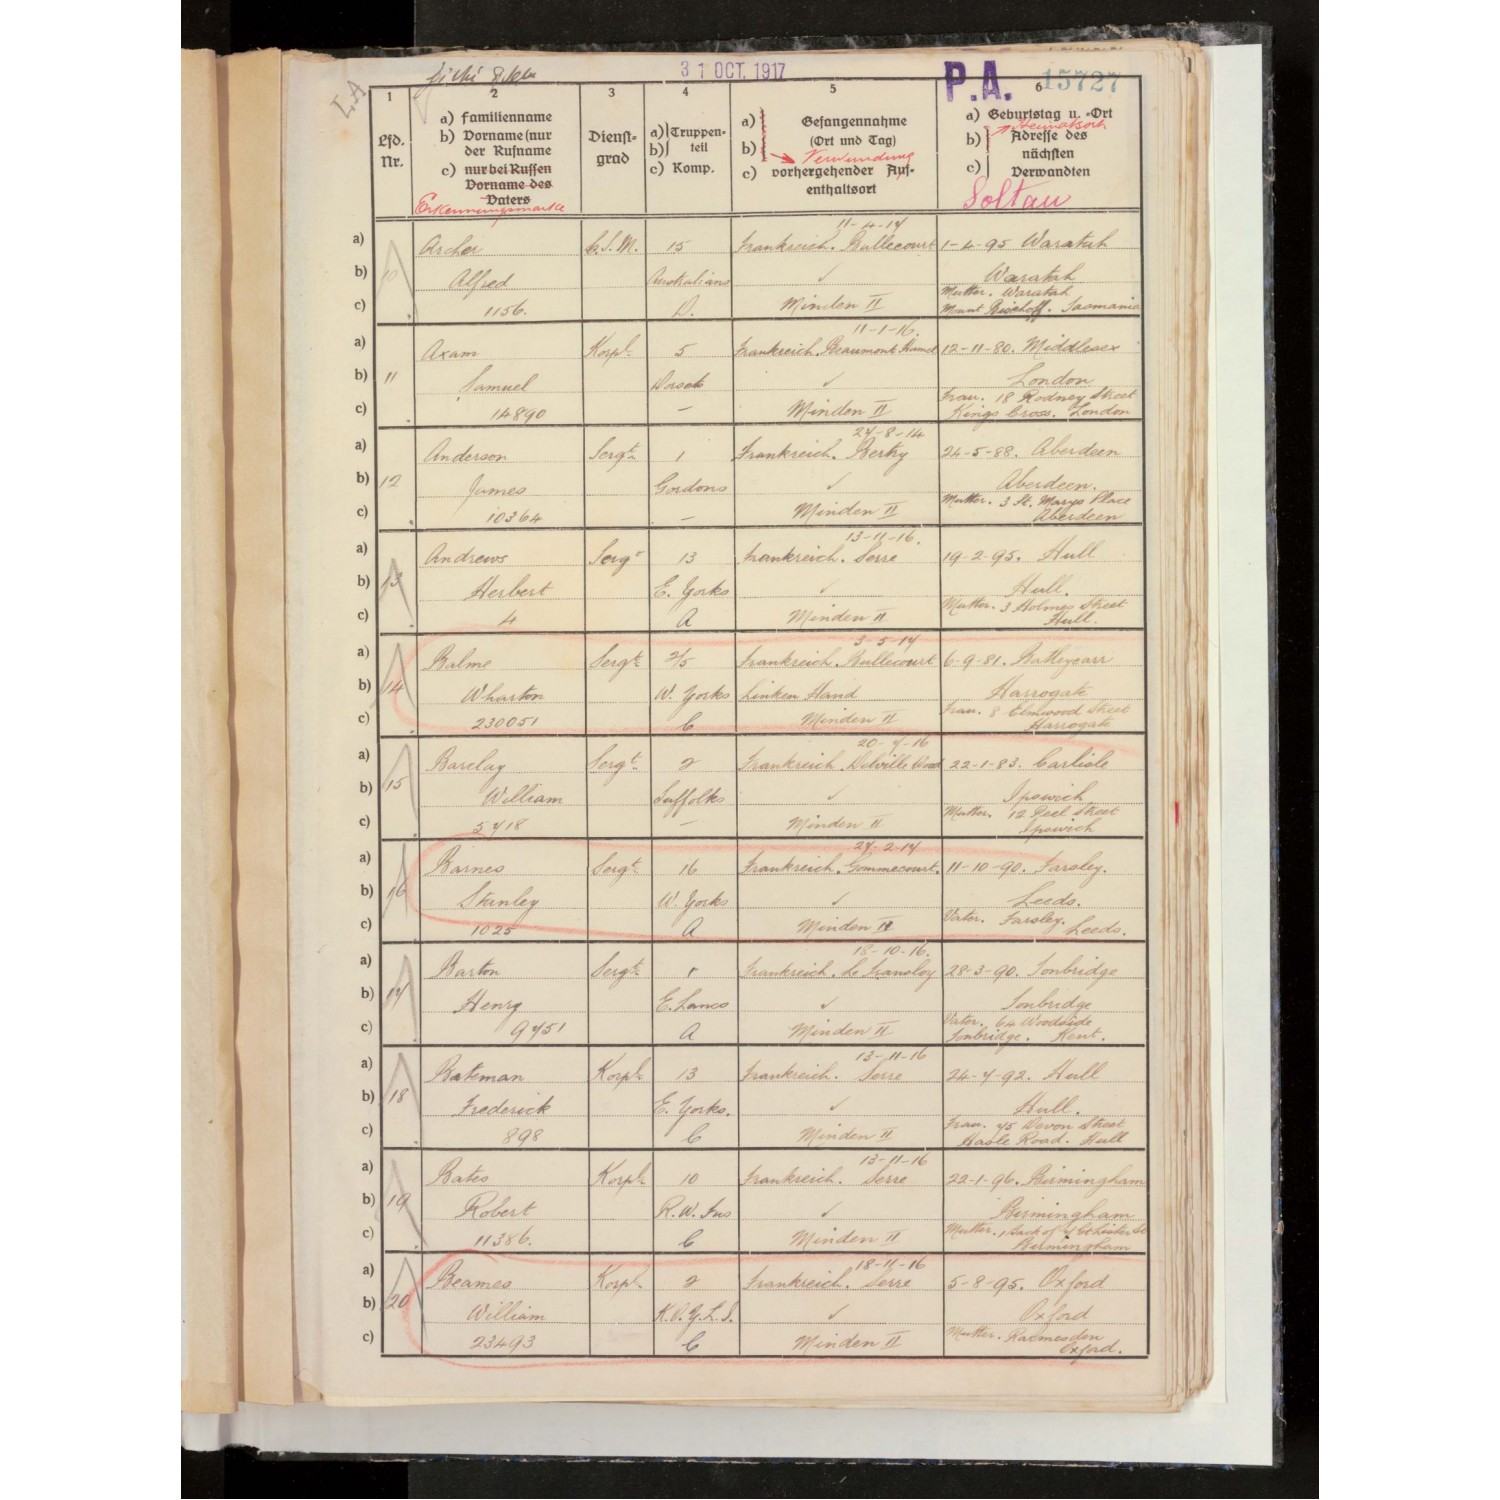 31 OCT. 1917
P.A. 15727
L.A
1
2
3
4
5
6
Lfd. Nr.
a) Familienname
b) Vorname (nur der Rufname
c) nur bei Russen Vorname des Vaters
Erkennungsmarke
Dienst-
grad
a) Truppen-
b) teil
c) Komp.
a) Gefangennahme
b) (Ort und Tag)
Verwundung
c) vorhergehender Auf-
enthaltsort
a) Geburtstag u. -Ort
Heimatsort
b) Adresse des
nächsten
c) Verwandten
Soltau
11-4-17
a) Archer C.S.M. 15 Frankreich. Bullecourt 1-4-95 Waratah
b) 10 Alfred Australians ✓ Waratah
Mutter. Waratah
c) 1156. D. Minden II Mount Bischoff. Tasmania
11-1-16.
a) Axam Korpl. 5 Frankreich. Beaumont Hamel 12-11-80. Middlesex
b) 11 Samuel Dorsets ✓ London
Frau. 18 Rodney Street
c) 14890 — Minden II Kings Cross. London
24-8-14
a) Anderson Sergt. 1 Frankreich. Bertry 24-5-88. Aberdeen
b) 12 James Gordons ✓ Aberdeen.
Mutter. 3 St. Marys Place
c) 10364 — Minden II Aberdeen
13-11-16.
a) Andrews Sergt 13 Frankreich. Serre 19-2-95. Hull
b) 13 Herbert E. Yorks ✓ Hull.
Mutter. 3 Holmes Street
c) 4 A Minden II Hull.
3-5-17
a) Balme Sergt. 2/5 Frankreich. Bullecourt 6-9-81.
b) 14 Wharton W. Yorks Linken Hand Harrogate
Frau. 8 Elmwood Street
c) 230051 C Minden II Harrogate
20-7-16
a) Barclay Sergt. 2 Frankreich. Delville Wood 22-1-83. Carlisle
b) 15 William Suffolks ✓ Ipswich
Mutter. 12 Peel Street
c) 5718 — Minden II Ipswich
27-2-17
a) Barnes Sergt. 16 Frankreich. Gommecourt. 11-10-90. Farsley.
b) 16 Stanley W. Yorks ✓ Leeds.
Vater. Farsley.
c) 1025 A Minden II Leeds.
18-10-16.
a) Barton Sergt. 1 Frankreich. Le Transloy 28-3-90. Tonbridge
b) 17 Henry E. Lancs ✓ Tonbridge
Vater. 64 Woodside
c) 9751 A Minden II Tonbridge. Kent.
13-11-16
a) Bateman Korpl. 13 Frankreich. Serre 24-7-92. Hull
b) 18 Frederick E. Yorks. ✓ Hull.
Frau. 75 Devon Street
c) 898 C Minden II Hasle Road. Hull
13-11-16
a) Bates Korpl. 10 Frankreich. Serre 22-1-96. Birmingham
b) 19 Robert R.W. Fus ✓ Birmingham
Mutter. 1 Back of
c) 11386. C Minden II Birmingham
18-11-16
a) Beames Korpl. 2 Frankreich. Serre 5-8-95. Oxford
b) 20 William K.O.Y.L.I. ✓ Oxford
Mutter.
c) 23493 C Minden II Oxford.